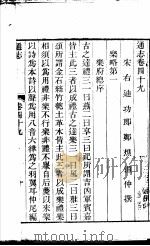 通志卷四十九
宋右迪功郎鄭樵漁仲撰
樂略第一
樂府總序
古之達禮三一曰燕二曰享三曰祀所謂吉凶軍賓嘉
皆主此三者以成禮古之達樂三一曰風二曰雅三曰
頌所謂金石絲竹匏土革木皆主此三者以成樂禮樂
相須以為用禮非樂不行樂非禮不舉自后夔以來樂
以詩為本詩以聲為用八音六律為之羽翼耳仲尼編
通志
卷四十九